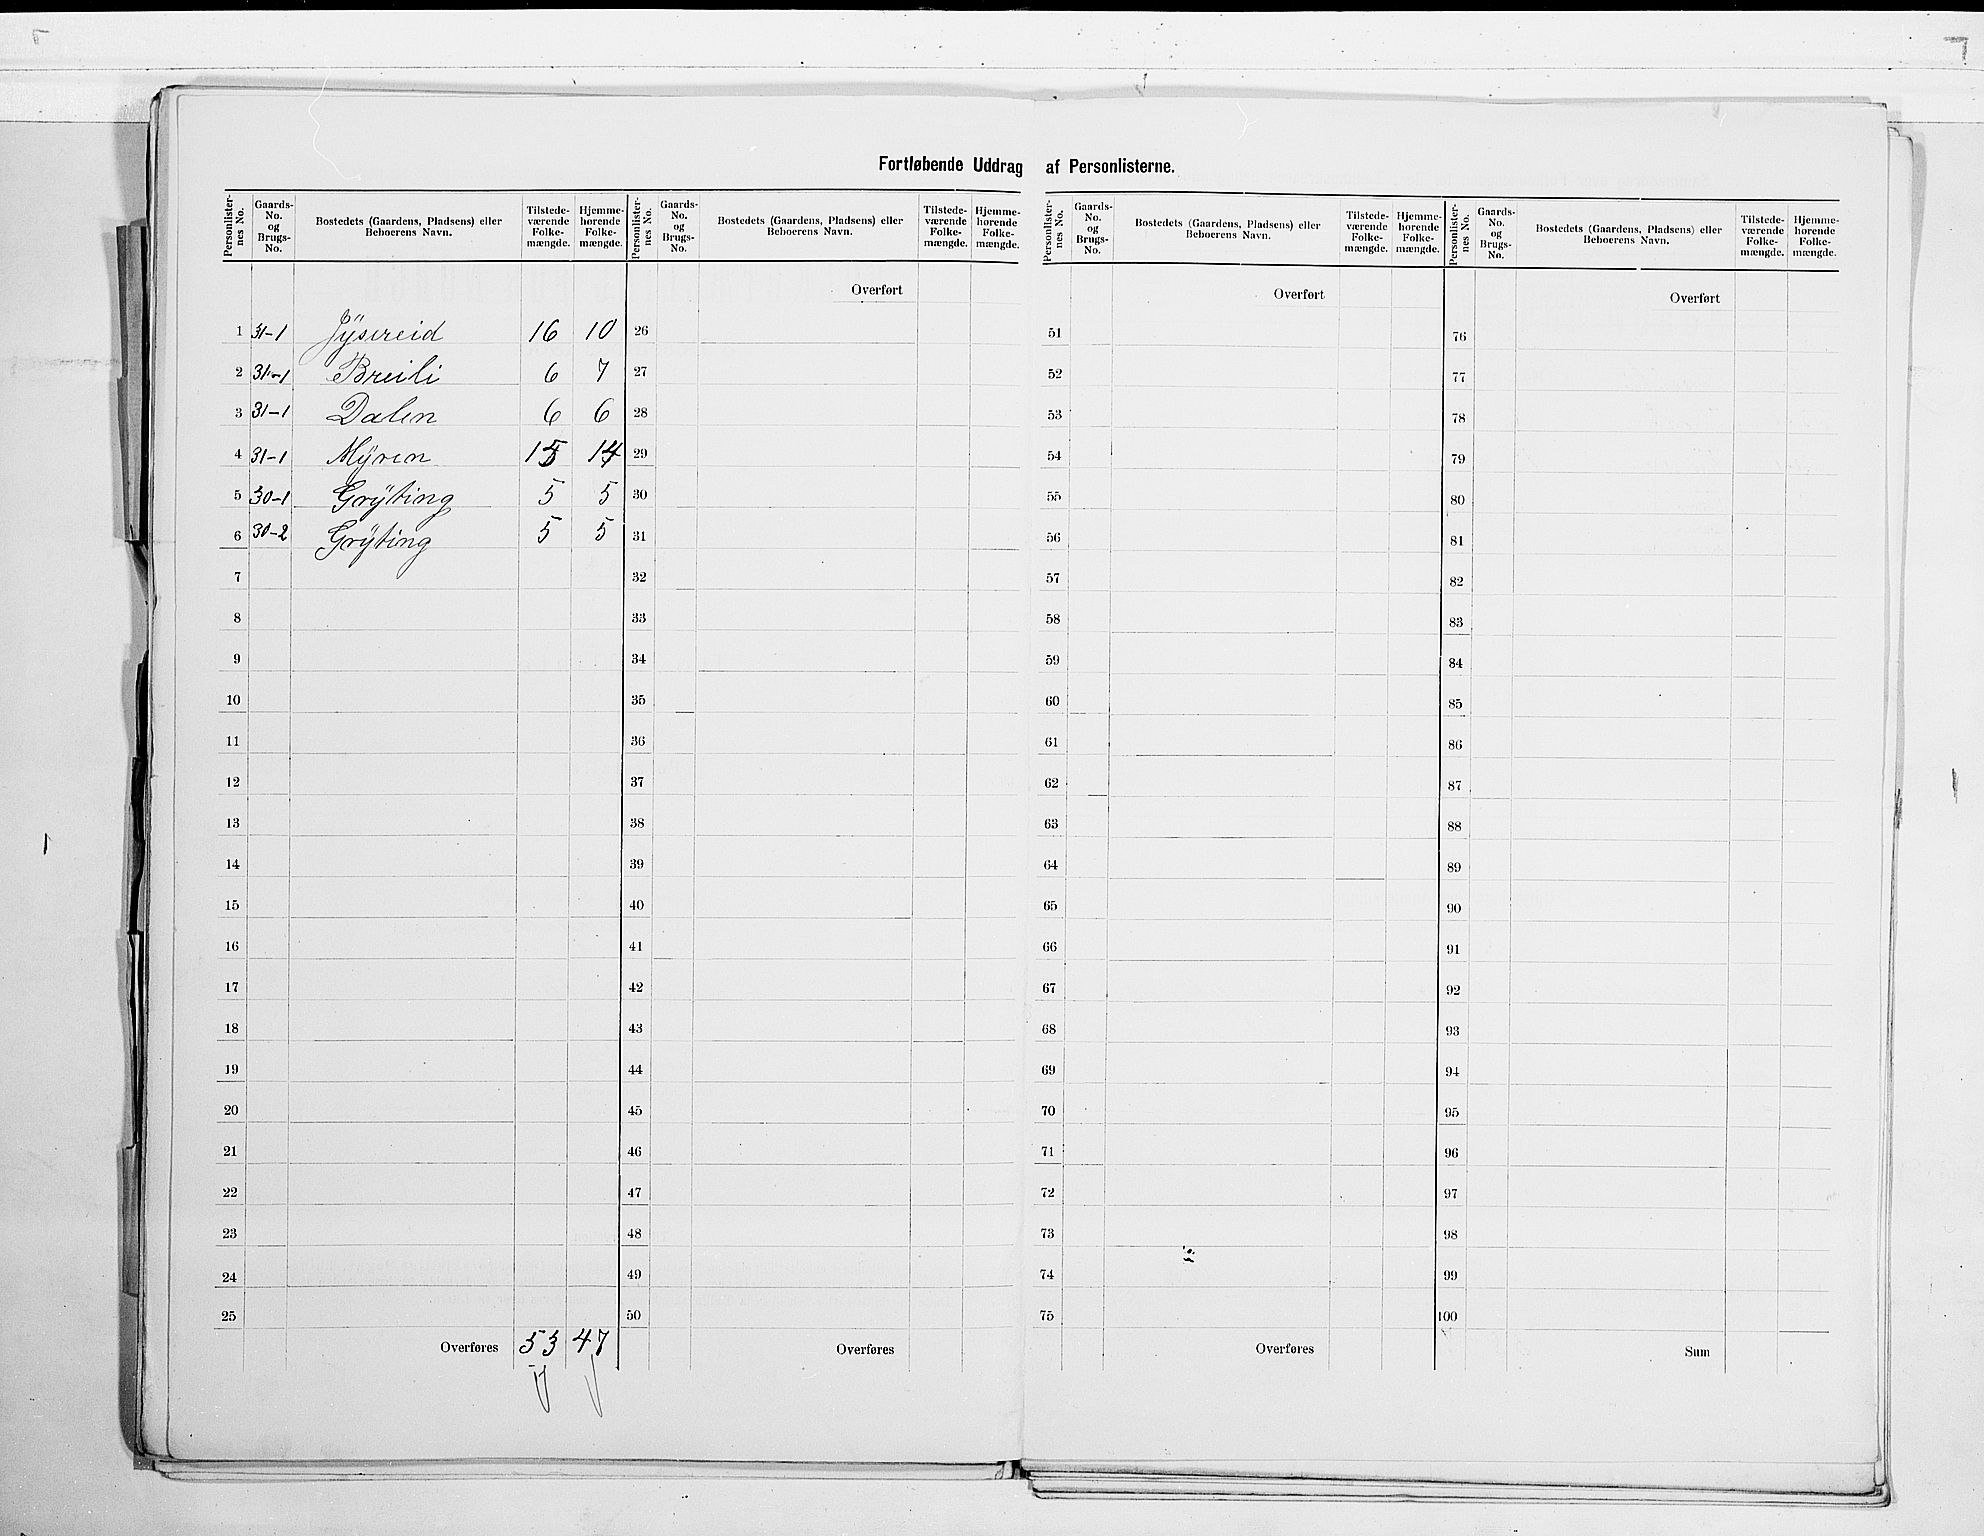 Fortløbende Uddrag af Personlisterne.
Personlister-nes No. | Gaards-No. og Brugs-No. | Bostedets (Gaardens, Pladsens) eller Beboerens Navn. | Tilstede-værende Folke-mængde. | Hjemme-hørende Folke-mængde.
1 31-1 16 10
2 31-1 Breili 6 7
3 31-1 Dalen 6 6
4 31-1 Mÿren 15 14
5 30-1 Grÿting 5 5
6 30-2 Grÿting 5 5
7
8
9
10
11
12
13
14
15
16
17
18
19
20
21
22
23
24
25
Overføres 53 47
Personlister-nes No. | Gaards-No. og Brugs-No. | Bostedets (Gaardens, Pladsens) eller Beboerens Navn. | Tilstede-værende Folke-mængde. | Hjemme-hørende Folke-mængde.
Overført
26
27
28
29
30
31
32
33
34
35
36
37
38
39
40
41
42
43
44
45
46
47
48
49
50
Overføres
Personlister-nes No. | Gaards-No. og Brugs-No. | Bostedets (Gaardens, Pladsens) eller Beboerens Navn. | Tilstede-værende Folke-mængde. | Hjemme-hørende Folke-mængde.
Overført
51
52
53
54
55
56
57
58
59
60
61
62
63
64
65
66
67
68
69
70
71
72
73
74
75
Overføres
Personlister-nes No. | Gaards-No. og Brugs-No. | Bostedets (Gaardens, Pladsens) eller Beboerens Navn. | Tilstede-værende Folke-mængde. | Hjemme-hørende Folke-mængde.
Overført
76
77
78
79
80
81
82
83
84
85
86
87
88
89
90
91
92
93
94
95
96
97
98
99
100
Sum